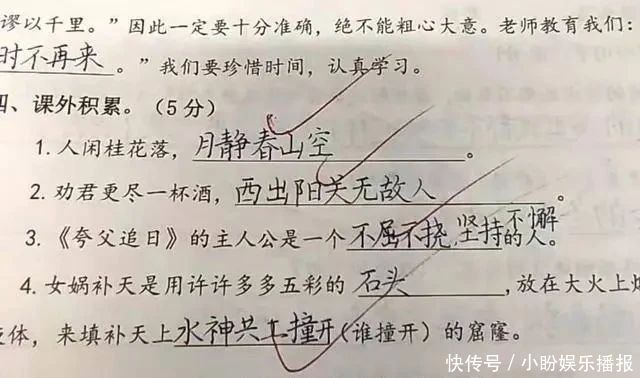 谬以千里。”因此一定要十分准确，绝不能粗心大意。老师教育我们：
时不再来。”我们要珍惜时间，认真学习。
四、课外积累。（5分）
1.人闲桂花落，月静春山空。
2.劝君更尽一杯酒，西出阳关无故人。
3.《夸父追日》的主人公是一个不屈不挠,坚持不懈的人。
4.女娲补天是用许许多多五彩的石头,放在大火上
体，来填补天上水神共工撞开(谁撞开)的窟窿。
快传号/小盼娱乐播报